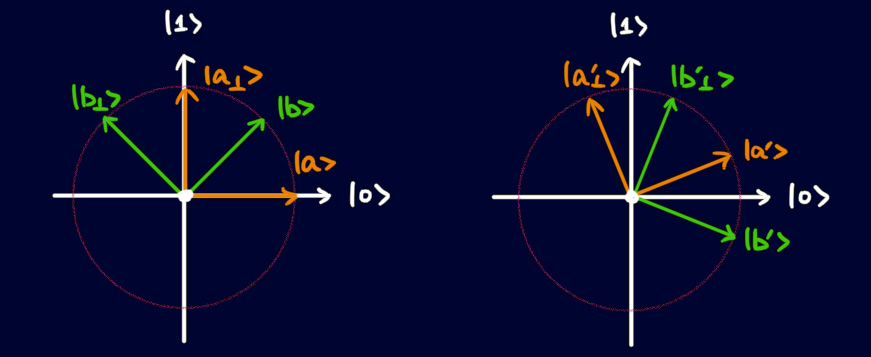 |1>
|a⊥>
|b⊥>
|b>
|a>
|0>
|1>
|a'⊥>
|b'⊥>
|a'>
|0>
|b'>